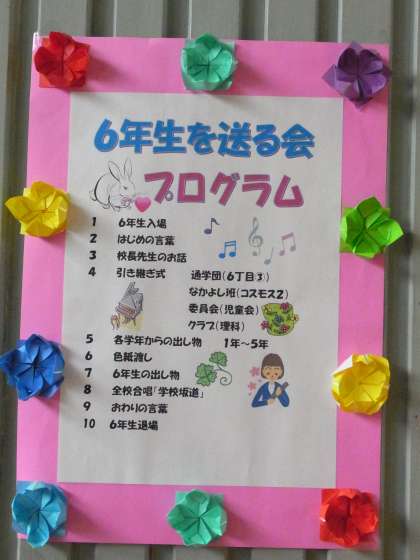 6年生を送る会
プログラム
1 6年生入場
2 はじめの言葉
3 校長先生のお話
4 引き継ぎ式 通学団(6丁目③)
なかよし班(コスモス2)
委員会(児童会)
クラブ(理科)
5 各学年からの出し物 1年~5年
6 色紙渡し
7 6年生の出し物
8 全校合唱「学校坂道」
9 おわりの言葉
10 6年生退場